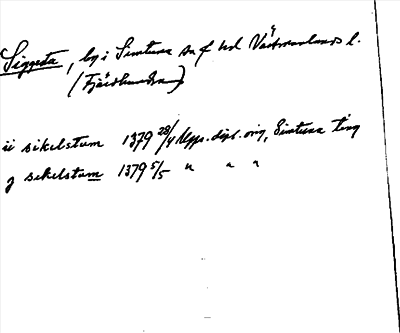 Siggesta, by i Simtuna sn f hd Västmanlands l.
(Fjärdhundra)
ii sikelstum 1379 28/4 Upps. dipl. orig, Simtuna ting
j sikelstum 1379 5/5 " " "